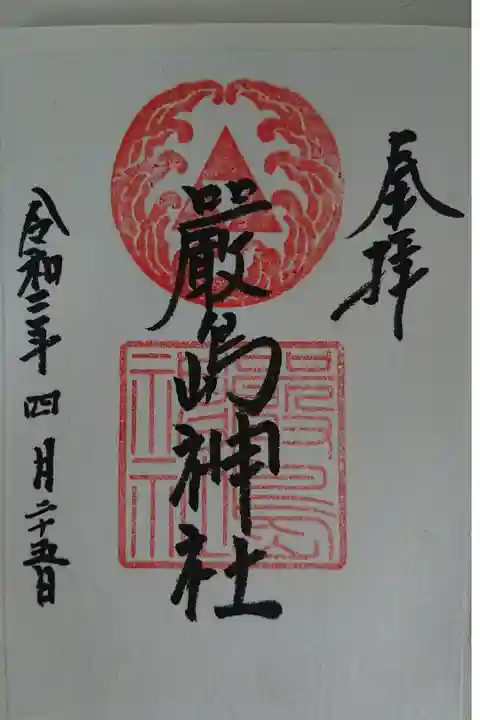 奉拝
嚴島神社
令和二年四月二十五日
嚴島神社